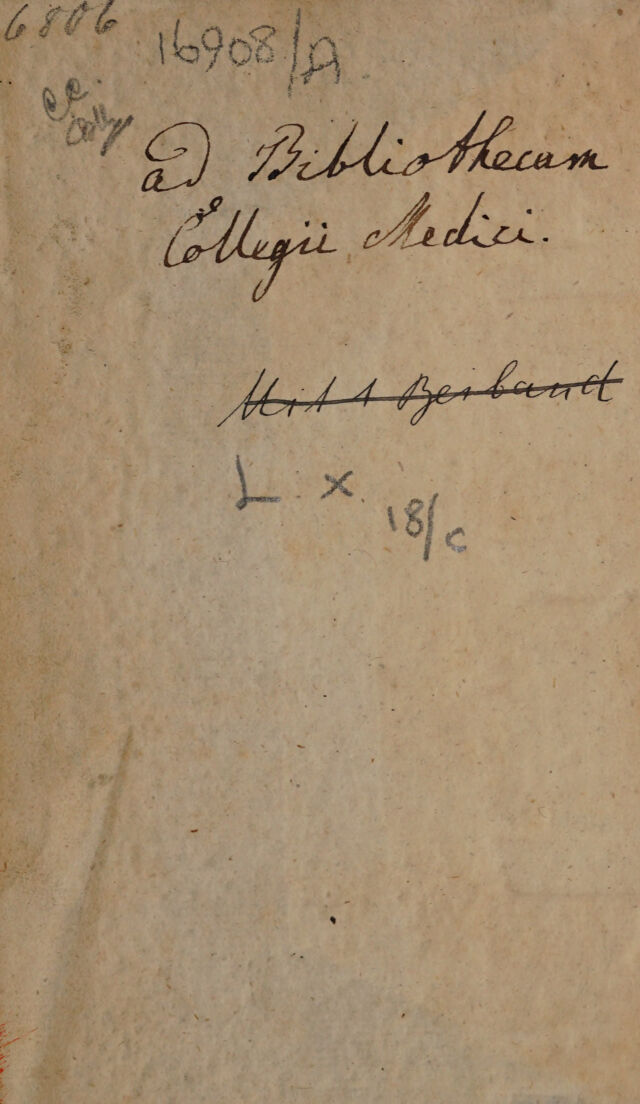 6806
16908/A
ad Bibliothecam
Collegii Medici.
Mit 1 Beiband
L x
18/c